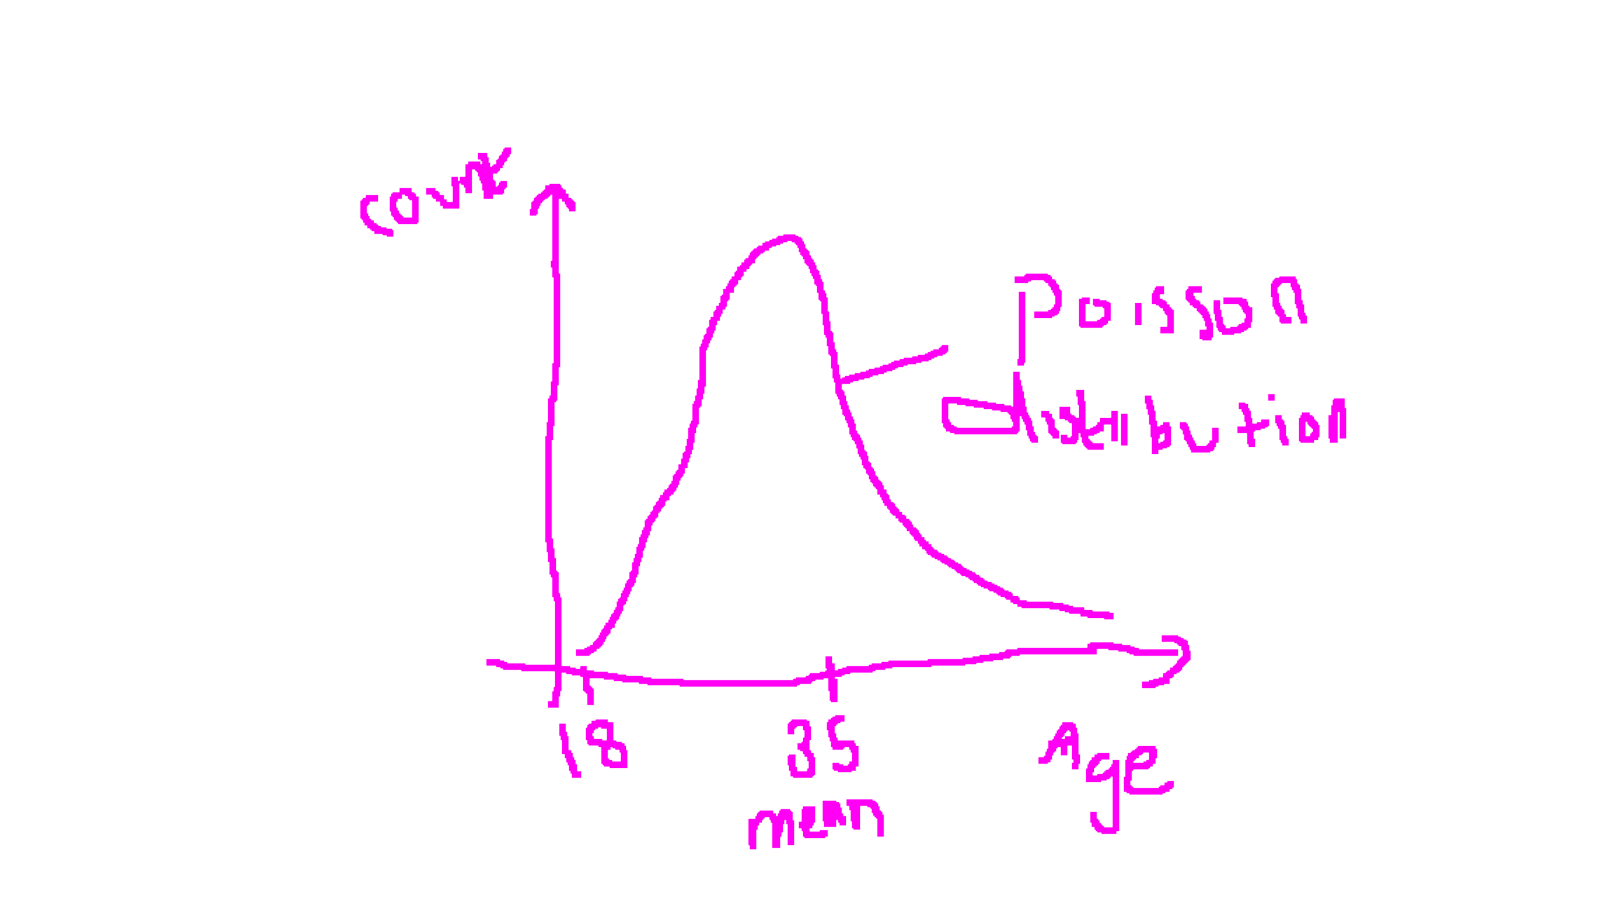 count
Poisson
distribution
18
35
mean
Age